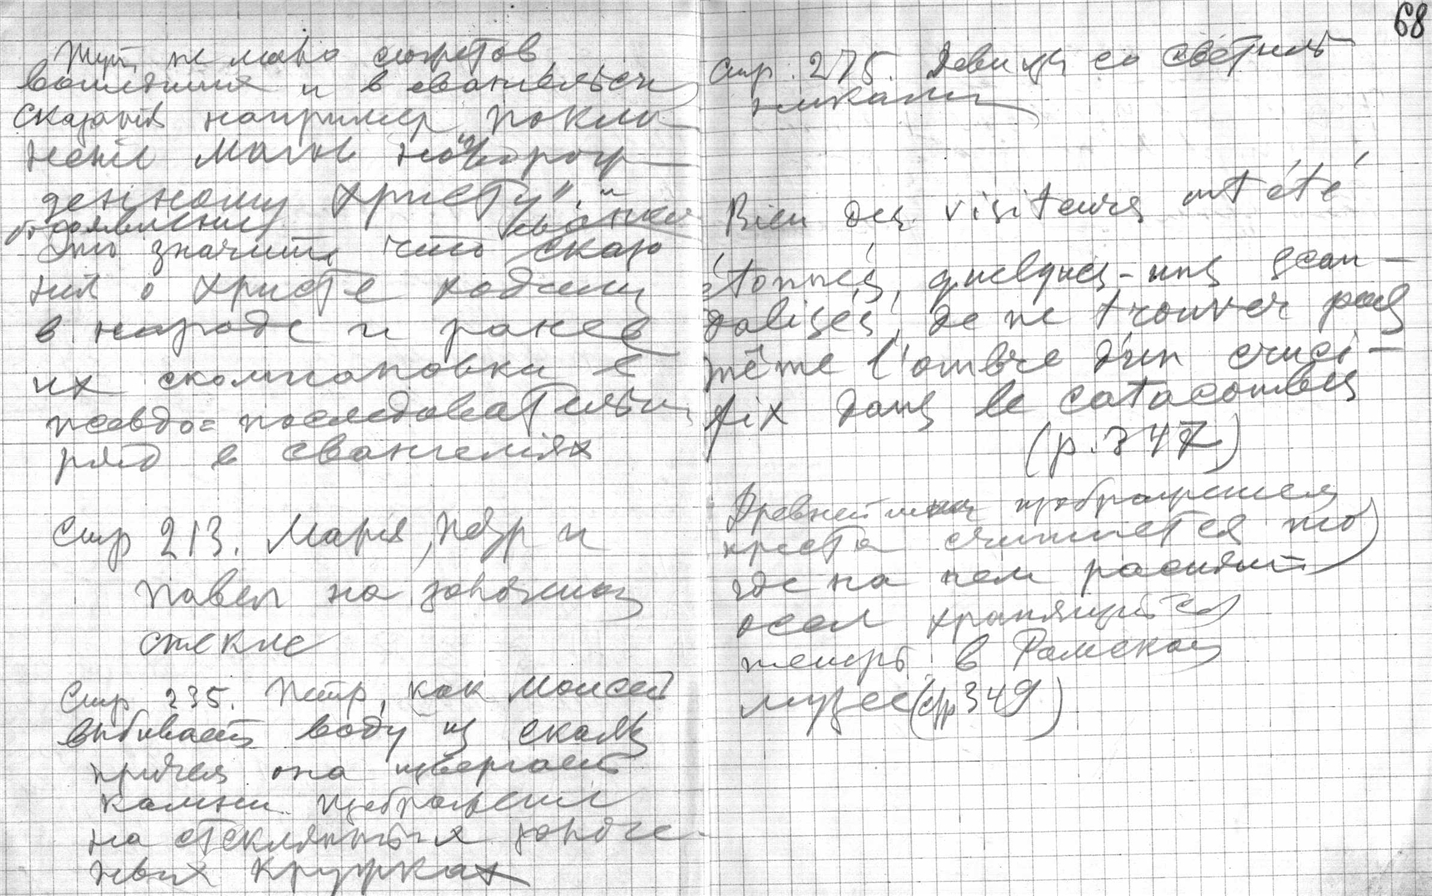 68
Тут не мало сюжетов
вошедших и в евангельск
сказанія например покло
неніе магов новорож
денному Христу" и
Это значитъ что сказа
нія о Христе ходили
в народе и ранее
их скомпановки в
псевдо=последовательн
ряд в евангеліях
Стр 213. Марія, Петр и
Павел на
стекле
Стр. 235. Петр, как Моисей
выбивает воду из скалы
причем она извергает
камни. Изображеніе
на стеклянных
ных кружках
Стр. 275. Девица со светиль
никами
Bien des visiteurs ont été
étonnés, quelques-uns scan-
dalisés, de ne trouver pas
même l'ombre d'un cruci-
fix dans le catacombes
(p. 347)
Древнейшим изображеніем
креста считается то
где на нем распят
осел хранящійся
теперь в Римском
музее (стр 349)